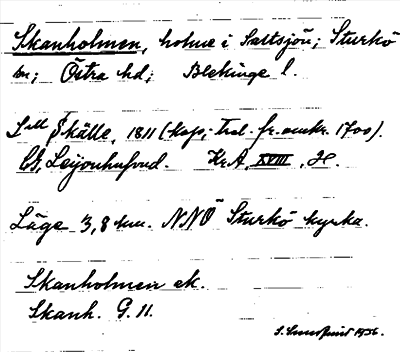 Skanholmen, holme i Saltsjön; Sturkö
sn; Östra hd; Blekinge l.
Skälle, 1811 (kop; trol. fr. omkr. 1700).
Leijonhufvud. Kr.A. XVIII, H.
Läge 3,8 km. NNÖ Sturkö kyrka.
Skanholmen ek.
Skanh. G. 11.